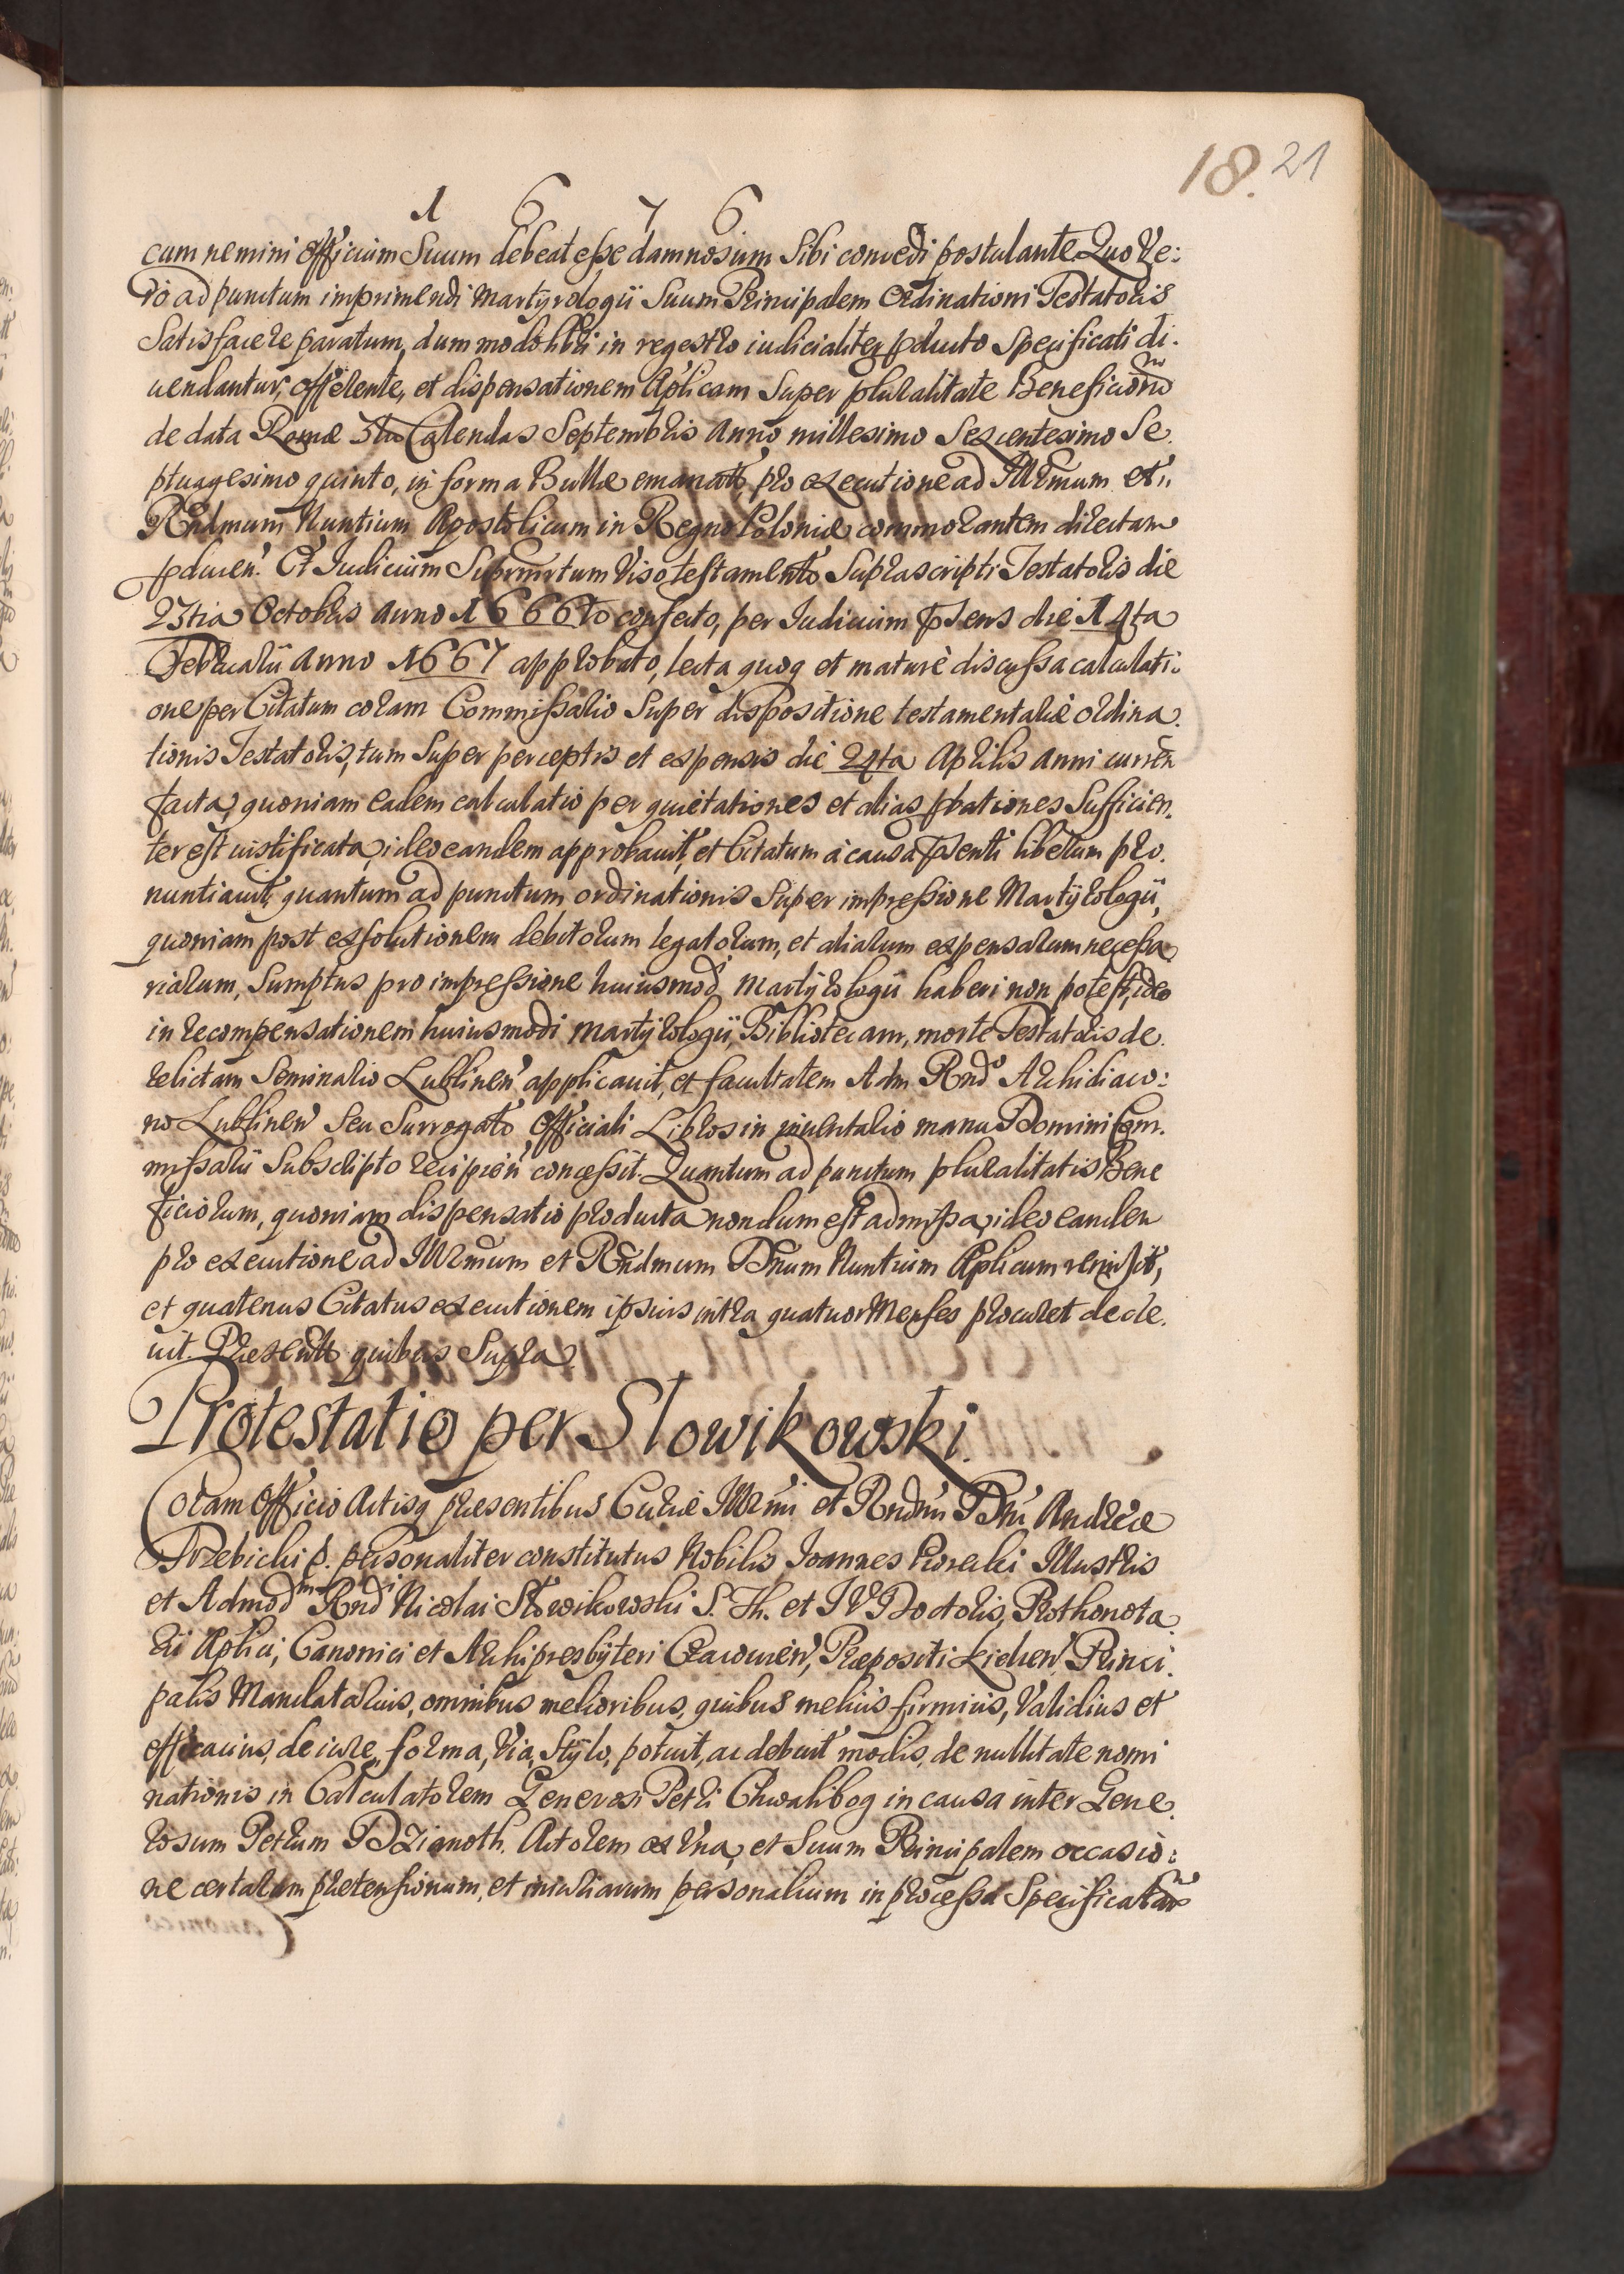 18. 21
1 6 7 6
cum nemini officium Suum debeat esse damnosum Sibi concedi postulante Quo Ve:
ro ad punctum imprimendi Martyrologii Suum Principalem Ordinationi Testatoris
Satisfacere paratum, dummodo libri in regestro iudicialiter pducto Specificati di.
uendantur, offerente, et dispensationem Aplicam Super pluralitate Beneficiorū
de data Romæ 5to Calendas Septembris Anno millesimo Sexcentesimo Se.
ptuagesimo quinto, in forma Bullæ emanat, pro executione ad Illrmum et
Rndmum Nuntium Apostolicum in Regno Poloniæ commorantem directam
pducen. Et Iudicium Viso testamento Suprascripti Testatoris die
23tia Octobris Anno 1666to confecto, per Iudicium psens die 14ta
Februarii Anno 1667 approbato, lecta quoq et maturè discussa calculati:
one per Citatum coram Commissario Super dispositione testamentariæ ordina.
tionis Testatoris, tum Super perceptis et expensis die 24ta Aprilis Anni curren
facta, quoniam eadem calculatio per quietationes et alias pbationes Sufficien.
ter est iustificata, ideo eandem approbauit, et Citatum à causa psenti liberum pro.
nuntiauit, quantum ad punctum ordinationis Super impressione Martyrologii,
quoniam post exsolutionem debitorum legatorum, et aliarum expensarum necessa
riarum, Sumptus pro impressione huiusmod Martyrologii haberi non potest, ideo
in recompensationem huiusmodi Martyrologii, Bibliotecam, morte Testatoris de.
relictam Seminario Lublinen applicauit, et facultatem Adm Rndo Archidiaco:
no Lublinen Seu Surrogato Officiali Libros in inuentario manu Domini Com.
missarii Subscripto recipien concessit. Quantum ad punctum pluralitatis Bene
ficiorum, quoniam dispensatio producta nondum est admissa, ideo eandem
pro executione ad Illrmum et Rndmum Dnum Nuntium Aplicum remisit,
et quatenus Citatus executionem ipsius intra quatuor Menses procuret decre.
uit. Præsentt quibus Supra.
Protestatio per Slowikowski.
Coram Officio Actisq præsentibus Curiæ Illrmi et Rndmi Dni Andreæ
Trzebicki personaliter constitutus Nobilis Joannes Illustris
et Admodm Rndi Nicolai Słowikowski S. Th. et I V Doctoris, Prothonota.
rii Aplici, Canonici et Archipresbyteri Cracouien, Præpositi Princi.
palis Mandatarius, omnibus melioribus, quibus melius firmius, Validius et
efficacius, de iure, forma, Via, Stylo, potuit, ac debuit modis, de nullitate nomi
nationis in Calculatorem Generosi Petri Chwalibog in causa inter Gene.
rosum Petrum Dzianoth. Actorem ex Vna, et Suum Principalem occasio:
ne certarum prætensionum, et iniuriarum personalium in processu Specificatarū